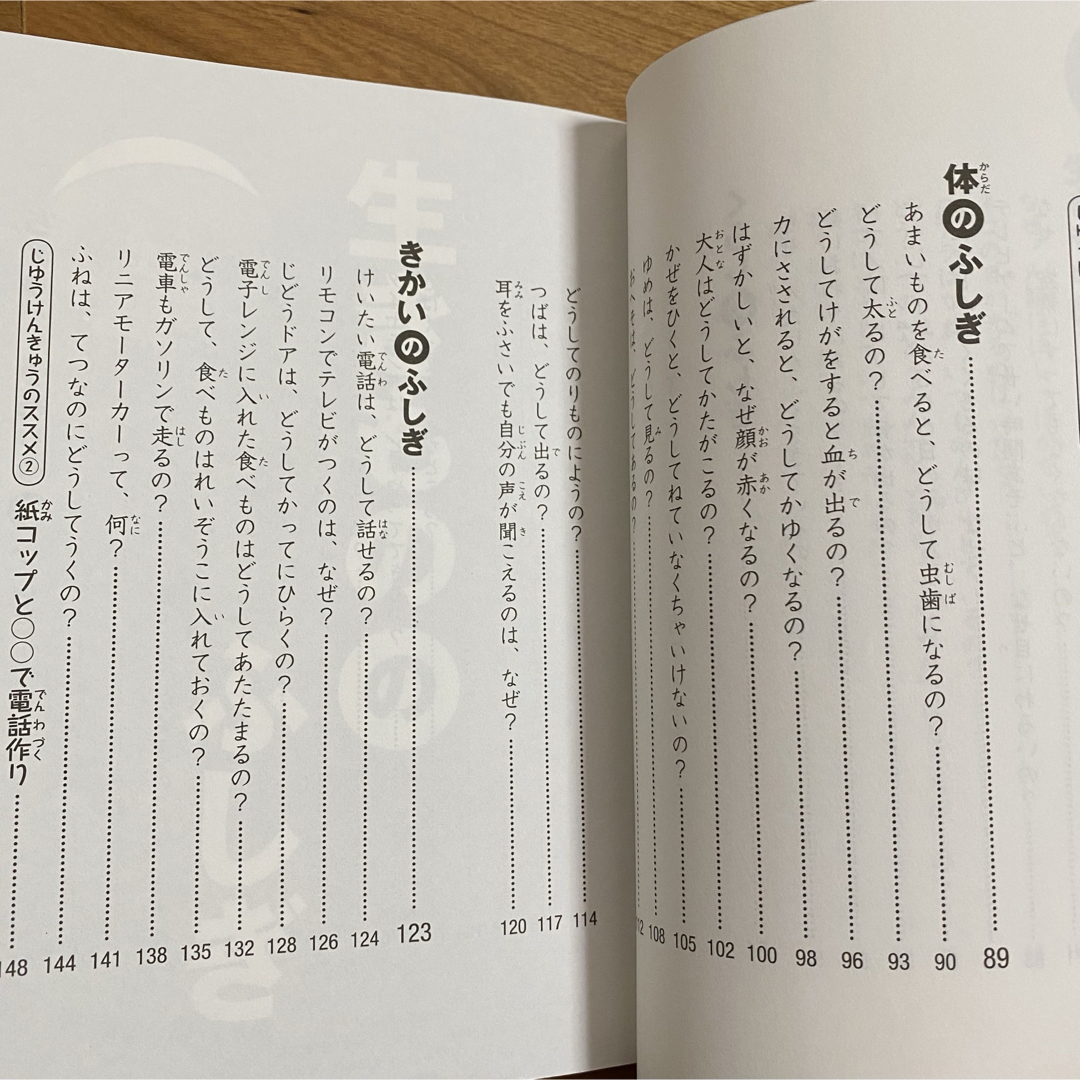 体のふしぎ 89
あまいものを食べると、どうして虫歯になるの？ 90
どうして太るの？ 93
どうしてけがをすると血が出るの？ 96
カにさされると、どうしてかゆくなるの？ 98
はずかしいと、なぜ顔が赤くなるの？ 100
大人はどうしてかたがこるの？ 102
かぜをひくと、どうしてねていなくちゃいけないの？ 105
ゆめは、どうして見るの？ 108
おへそは、どうしてあるの？
どうしてのりものにようの？ 114
つばは、どうして出るの？ 117
耳をふさいでも自分の声が聞こえるのは、なぜ？ 120
きかいのふしぎ 123
けいたい電話は、どうして話せるの？ 124
リモコンでテレビがつくのは、なぜ？ 126
じどうドアは、どうしてかってにひらくの？ 128
電子レンジに入れた食べものはどうしてあたたまるの？ 132
どうして、食べものはれいぞうこに入れておくの？ 135
電車もガソリンで走るの？ 138
リニアモーターカーって、何？ 141
ふねは、てつなのにどうしてうくの？ 144
じゆうけんきゅうのススメ② 紙コップと○○で電話作り 148